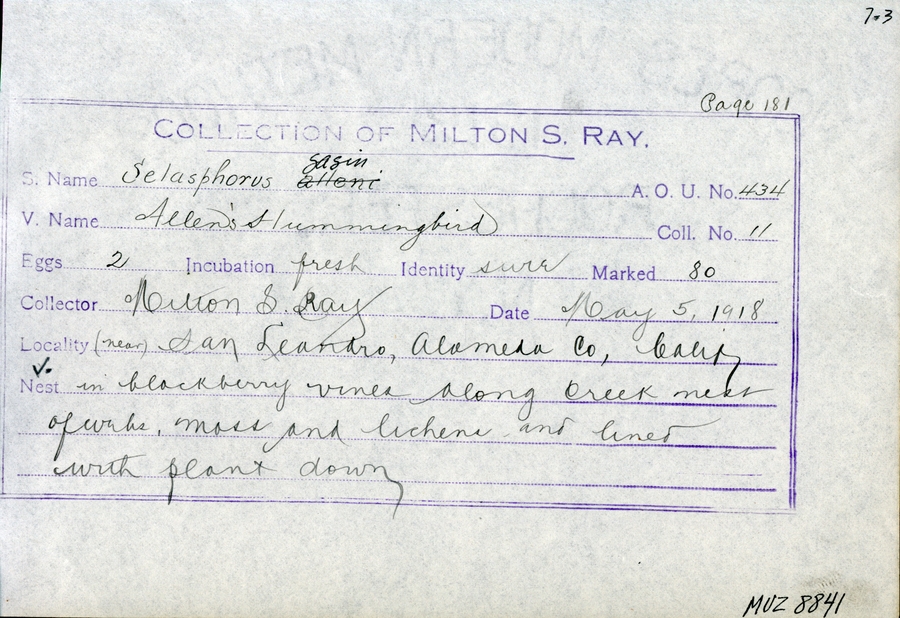 7=3
Page 181
COLLECTION OF MILTON S. RAY.
sasin
S. Name Selasphorus alleni A. O. U. No. 434
V. Name Allen's Hummingbird Coll. No. 11
Eggs 2 Incubation fresh Identity sure Marked 80
Collector Milton S. Ray Date May 5, 1918
Locality (near) San Leandro, Alameda Co, Calif
✓.
Nest in blackberry vines along Creek nest
of webs, moss and lichens and lined
with plant down
MVZ 8841